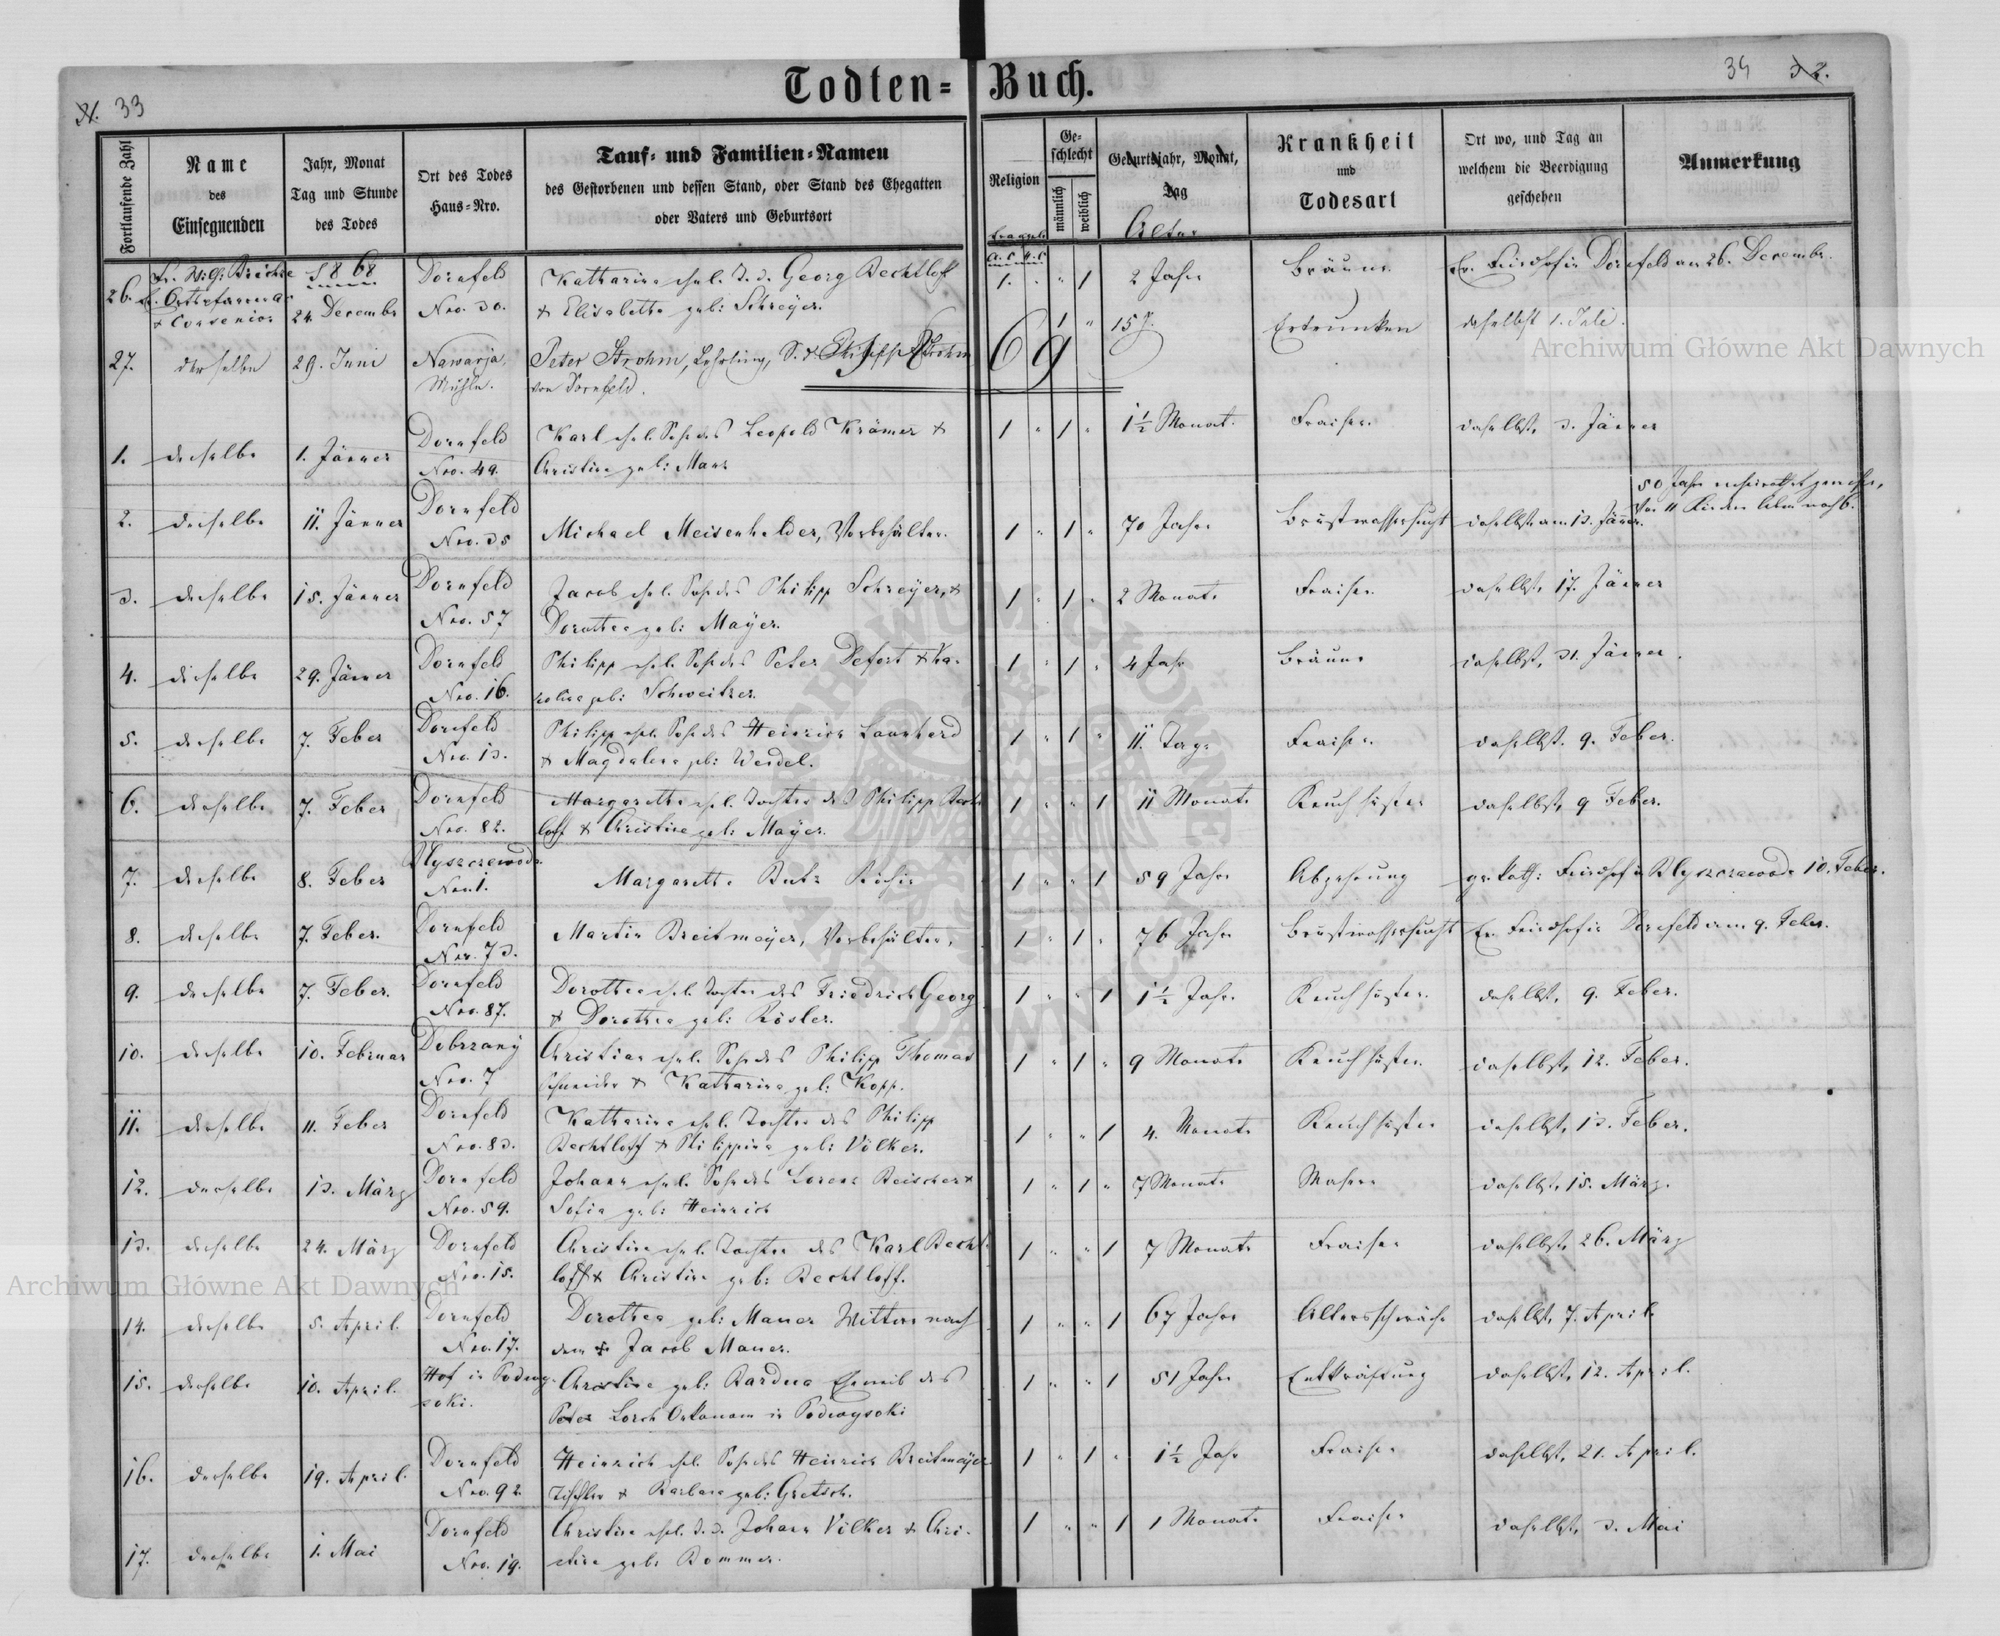 Todten-Buch.
33
34
Fortlaufende Zahl
Name
des
Einsegnenden
Jahr, Monat
Tag und Stunde
des Todes
Ort des Todes
Haus-Nro.
Tauf- und Familien-Namen
des Gestorbenen und dessen Stand, oder Stand des Ehegatten
oder Vaters und Geburtsort
Religion
Ge-
schlecht
männlich
weiblich
Geburtsjahr, Monat,
Tag
Alter
Krankheit
und
Todesart
Ort wo, und Tag an
welchem die Beerdigung
geschehen
Anmerkung
evangel.
A.C. H.C.
26. Ortspfarrer
& Consenior
1868
24. Decembr
Dornfeld
Nro. 30.
Katharina ehel. T. d. Georg Bechtloff
& Elisabetha geb: Schreyer.
1. " " 1 2 Jahre Bräune Ev. Friedhof in Dornfeld am 26. Decembr.
27. derselbe 29. Juni Nawarja
Mühle.
Peter Strohm, Lehrling, S. d. Strohm
von Dornfeld.
1 " 15 J. Ertrunken daselbst 1. Juli.
69
1. derselbe 1. Jänner Dornfeld
Nro. 49.
Karl ehel. Sohn des Leopold Krämer &
Christine geb: Manz
1 " 1 " 1½ Monat. Fraisen. daselbst, 3. Jänner
2. derselbe 11. Jänner Dornfeld
Nro. 35
Michael Meisenhelder, Vorbehälter.
1 " 1 " 70 Jahre Brustwassersucht daselbst am 13. Jänner.
50 Jahre verheirathet gewesen,
Von 11 Kindern leben noch 6.
3. derselbe 15. Jänner Dornfeld
Nro. 57
Jacob ehel. Sohn des Philipp Schreyer, &
Dorothea geb: Mayer.
1 " 1 " 2 Monate Fraisen. daselbst, 17. Jänner
4. derselbe 29. Jänner Dornfeld
Nro. 16.
Philipp ehel. Sohn des Peter Defort & Ka-
rolina geb: Schweitzer.
1 " 1 " 4 Jahr Bräune daselbst, 31. Jänner.
5. derselbe 7. Feber Dornfeld
Nro. 13.
Philipp ehel. Sohn des Heinrich Launhard
& Magdalena geb: Wendel.
1 " 1 " 11. Tage Fraisen. daselbst. 9. Feber.
6. derselbe 7. Feber Dornfeld
Nro. 82.
Margaretha ehel. Tochter des Philipp Becht
loff & Christine geb: Mayer.
1 " " 1 11 Monate Keuchhusten daselbst, 9 Feber.
7. derselbe 8. Feber
Nro. 1.
Margaretha Butz Köchin
1 " " 1 59 Jahre Abzehrung gr. kath: Friedhof in 10. Feber.
8. derselbe 7. Feber. Dornfeld
Nro. 73.
Martin Breitmayer, Vorbehälter,
1 " 1 " 76 Jahre Brustwassersucht Ev. Friedhof in Dornfeld am 9. Feber.
9. derselbe 7. Feber. Dornfeld
Nro. 87.
Dorothea ehel. Tochter des Friedrich Georg
& Dorothea geb: Rösler.
1 " " 1 1½ Jahr. Keuchhusten. daselbst, 9. Feber.
10. derselbe 10. Februar Dobrzany
Nro. 7
Christian ehel. Sohn des Philipp Thomas
Schneider & Katharina geb: Kopp.
1 " 1 " 9 Monate Keuchhusten daselbst, 12. Feber.
11. derselbe 11. Feber Dornfeld
Nro. 83.
Katharina ehel. Tochter des Philipp
Bechtloff & Philippina geb: Völker.
1 " " 1 4. Monate Keuchhusten daselbst, 13. Feber.
12. derselbe 13. März Dornfeld
Nro. 59.
Johann ehel. Sohn des Lorenz Beischer &
Sofia geb: Heinrich
1 " 1 " 7 Monate Masern daselbst, 15. März.
13. derselbe 24. März Dornfeld
Nro. 15.
Christine ehel. Tochter des Karl Becht
loff & Christine geb: Bechtloff.
1 " " 1 7 Monate Fraisen daselbst, 26. März
14. derselbe 5. April. Dornfeld
Nro. 17.
Dorothea geb: Mauer Wittwe nach
dem Jacob Mauer.
1 " " 1 67 Jahre Altersschwäche daselbst, 7. April
15. derselbe 10. April. Hof in Podwy-
soki.
Christine geb: Eheweib des
Peter Lorch Oekonom in Podwysoki
1 " " 1 51 Jahre Entkräftung daselbst, 12. April.
16. derselbe 19. April. Dornfeld
Nro. 92.
Heinrich ehel. Sohn des Heinrich Breitmayer
Tischler & Barbara geb: Gretsch.
1 " 1 " 1½ Jahr Fraisen daselbst, 21. April.
17. derselbe 1. Mai Dornfeld
Nro. 19.
Christine ehel. T. d. Johann Völker & Chri-
stine geb: Rommer.
1 " " 1 1 Monate Fraisen daselbst, 3. Mai
Archiwum Główne Akt Dawnych
Archiwum Główne Akt Dawnych